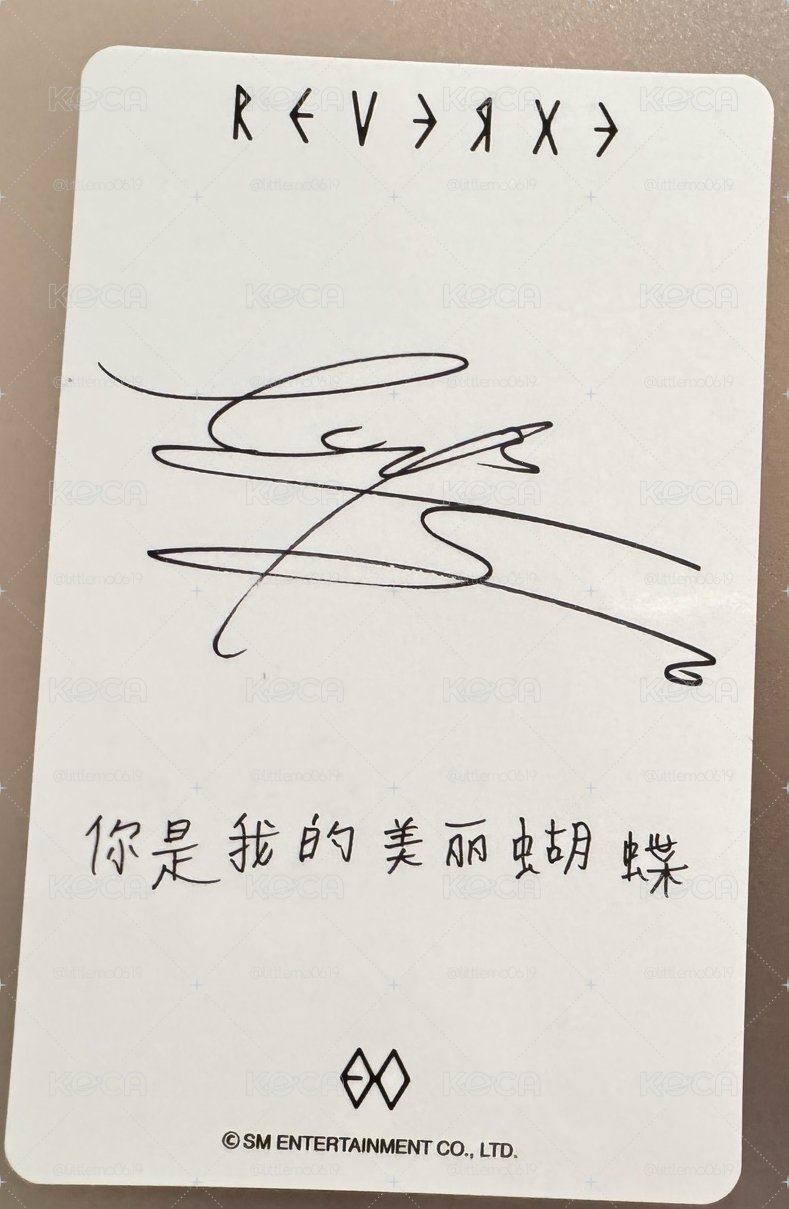 REVERXE
你是我的美丽蝴蝶
EXO
© SM ENTERTAINMENT CO., LTD.
KOCA
@littlemo0619